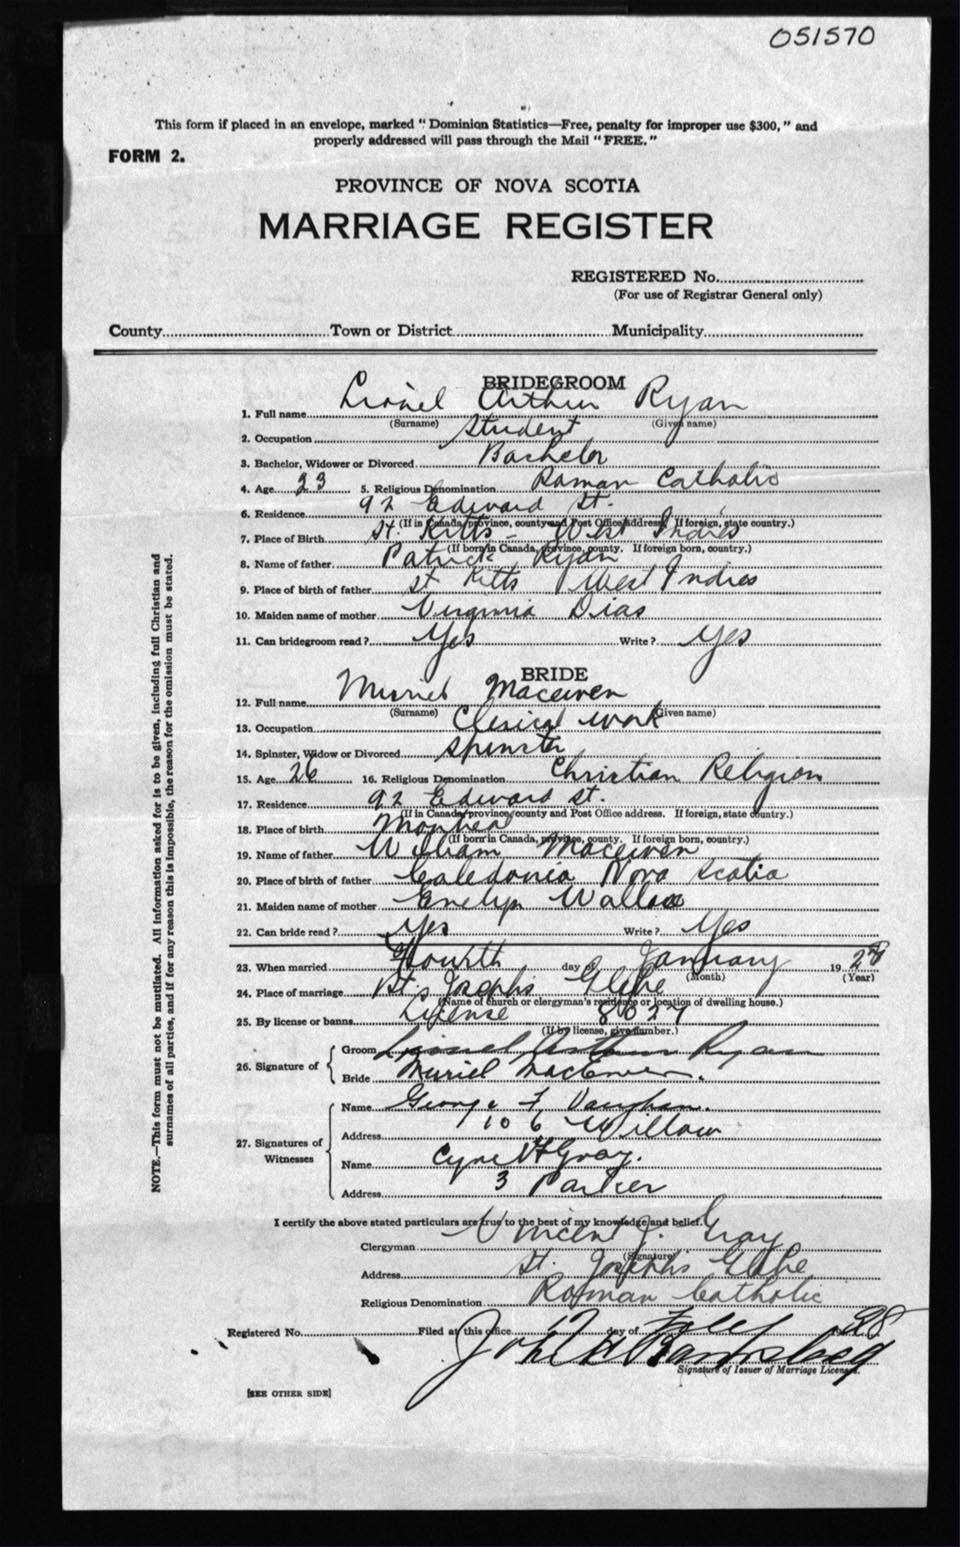 051570
This form if placed in an envelope, marked "Dominion Statistics—Free, penalty for improper use $300," and
properly addressed will pass through the Mail "FREE."
FORM 2.
PROVINCE OF NOVA SCOTIA
MARRIAGE REGISTER
REGISTERED No.
(For use of Registrar General only)
County Town or District Municipality
BRIDEGROOM
1. Full name Lionel Arthur Ryan
(Surname) (Given name)
2. Occupation Student
3. Bachelor, Widower or Divorced Bachelor
4. Age 23 5. Religious Denomination Roman Catholic
6. Residence 92 Edward St.
(If in Canada, province, county and Post Office address. If foreign, state country.)
7. Place of Birth St. Kitts - West Indies
(If born in Canada, province, county. If foreign born, country.)
8. Name of father Patrick Ryan
9. Place of birth of father St Kitts West Indies
10. Maiden name of mother Virginia Dias
11. Can bridegroom read? Yes Write? Yes
BRIDE
12. Full name Muriel Macewen
(Surname) (Given name)
13. Occupation Clerical work
14. Spinster, Widow or Divorced Spinster
15. Age 26 16. Religious Denomination Christian Religion
17. Residence 92 Edward St.
(If in Canada, province, county and Post Office address. If foreign, state country.)
18. Place of birth Montreal
(If born in Canada, province, county. If foreign born, country.)
19. Name of father William Macewen
20. Place of birth of father Caledonia Nova Scotia
21. Maiden name of mother Evelyn Wallace
22. Can bride read? Yes Write? Yes
23. When married Fourth day of January 1928
(Month) (Year)
24. Place of marriage St. Josephs Glebe
(Name of church or clergyman's residence or location of dwelling house.)
25. By license or banns License 8627
(If by license, give number.)
26. Signature of
Groom Lionel Arthur Ryan
Bride Muriel MacEwen.
27. Signatures of Witnesses
Name George F Vaughan.
Address 106 Willow
Name Gray.
Address 3 Parker
I certify the above stated particulars are true to the best of my knowledge and belief.
Clergyman Vincent J. Gray
(Signature)
Address St. Josephs Glebe
Religious Denomination Roman Catholic
Registered No. Filed at this office day of 1928
John
Signature of Issuer of Marriage Licenses.
[SEE OTHER SIDE]
NOTE.—This form must not be mutilated. All information asked for is to be given, including full Christian and
surnames of all parties, and if for any reason this is impossible, the reason for the omission must be stated.